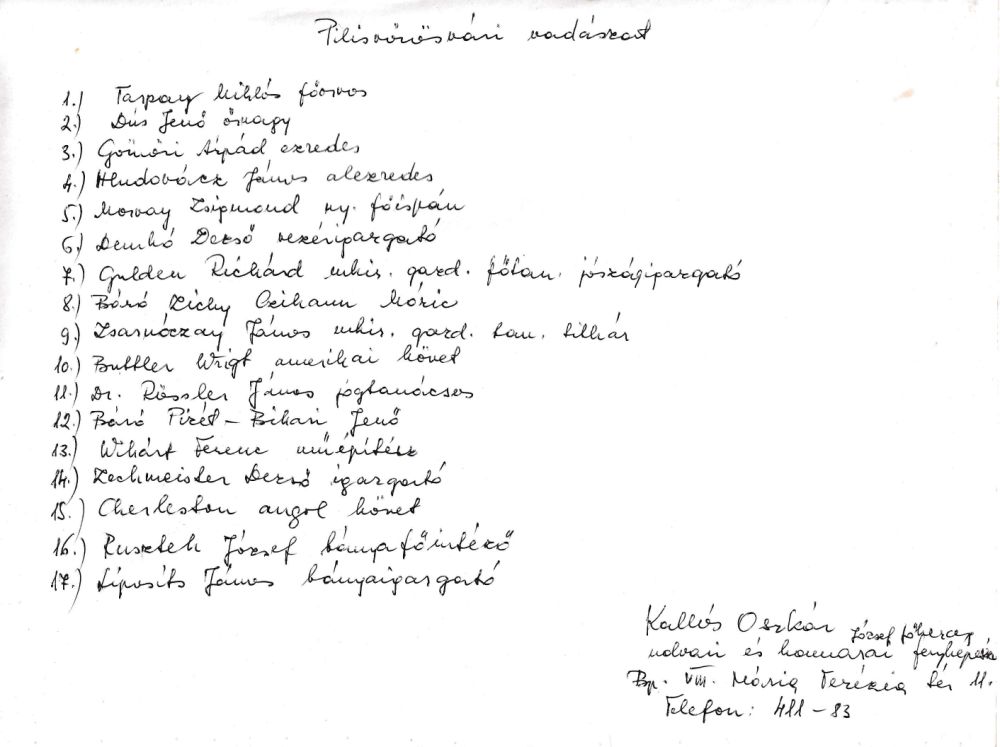 Pilisvörösvári vadászat
1.) Taspay Miklós főorvos
2.) Dús Jenő őrnagy
3.) Gömöri Árpád ezredes
4.) Hludovácz János alezredes
5.) Morvay Zsigmond ny. főispán
6.) Demkó Dezső vezérigazgató
7.) Gulden Richárd mkir. gazd. főtan. jószágigazgató
8.) Báró Zichy Czikann Móric
9.) Zsarnóczay János mkir. gazd. tan. titkár
10.) Buttler Wrigt amerikai követ
11.) Dr. Rössler János jogtanácsos
12.) Báró Pirét - Bihari Jenő
13.) Wikárt Ferenc műépítész
14.) Zechmeister Dezső igazgató
15.) Cherleston angol követ
16.) Rusztek József bányafőintéző
17.) Liposits János bányaigazgató
Kallós Oszkár József főherceg
udvari és kamarai fényképész
Bp. VIII. Mária Terézia tér 11.
Telefon: 411-83